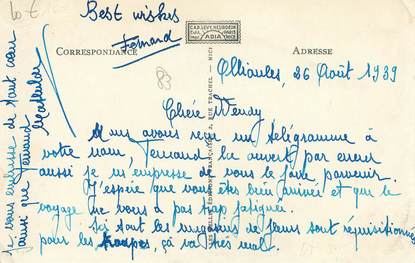 lot
Best wishes
Fernand
CORRESPONDANCE
ADRESSE
83
Ollioules, 26 Août 1939
Chère Wendy
Nous avons reçu un télégramme à
votre nom, Fernand l'a ouvert par erreur
aussi je m'empresse de vous le faire parvenir.
J'espère que vous êtes bien arrivée et que le
voyage ne vous a pas trop fatiguée.
Ici tout les magasins de fleurs sont réquisitionnés
pour les troupes, ça va très mal.
Je vous embrasse de tout cœur
ainsi que Fernand